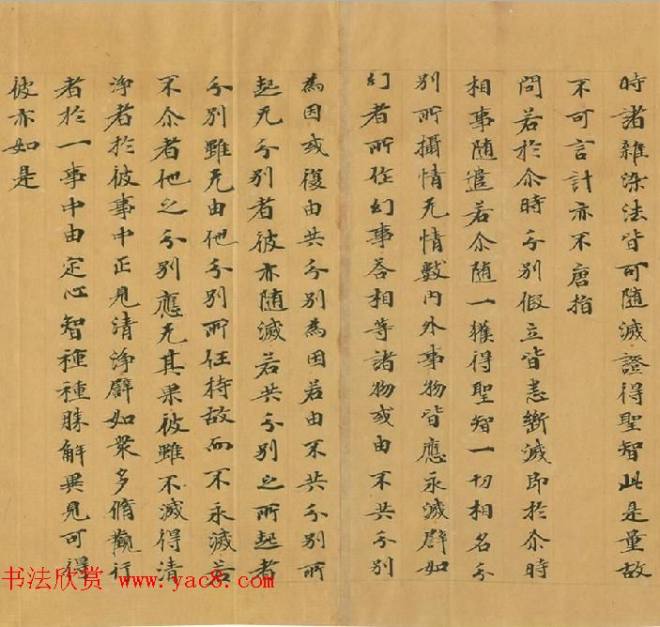 時諸雜染法皆可随滅證得聖智此是重故
不可言計亦不唐捐
問若於尒時分别假立皆悉斷滅即於尒時
相事随遣若尒随一獲得聖智一切相名分
别所攝情无情數内外事物皆應永滅譬如
幻者所住幻事答相等諸物或由不共分别
為因或復由共分别為因若由不共分别所
起无分别者彼亦随滅若共分别之所起者
分别雖无由他分别所任持故而不永滅若
不尒者他之分别應无其果彼雖不滅得清
淨者於彼事中正見清淨譬如衆多脩觀行
者於一事中由定心智種種勝解異見可得
彼亦如是
书法欣赏 www.yac8.com